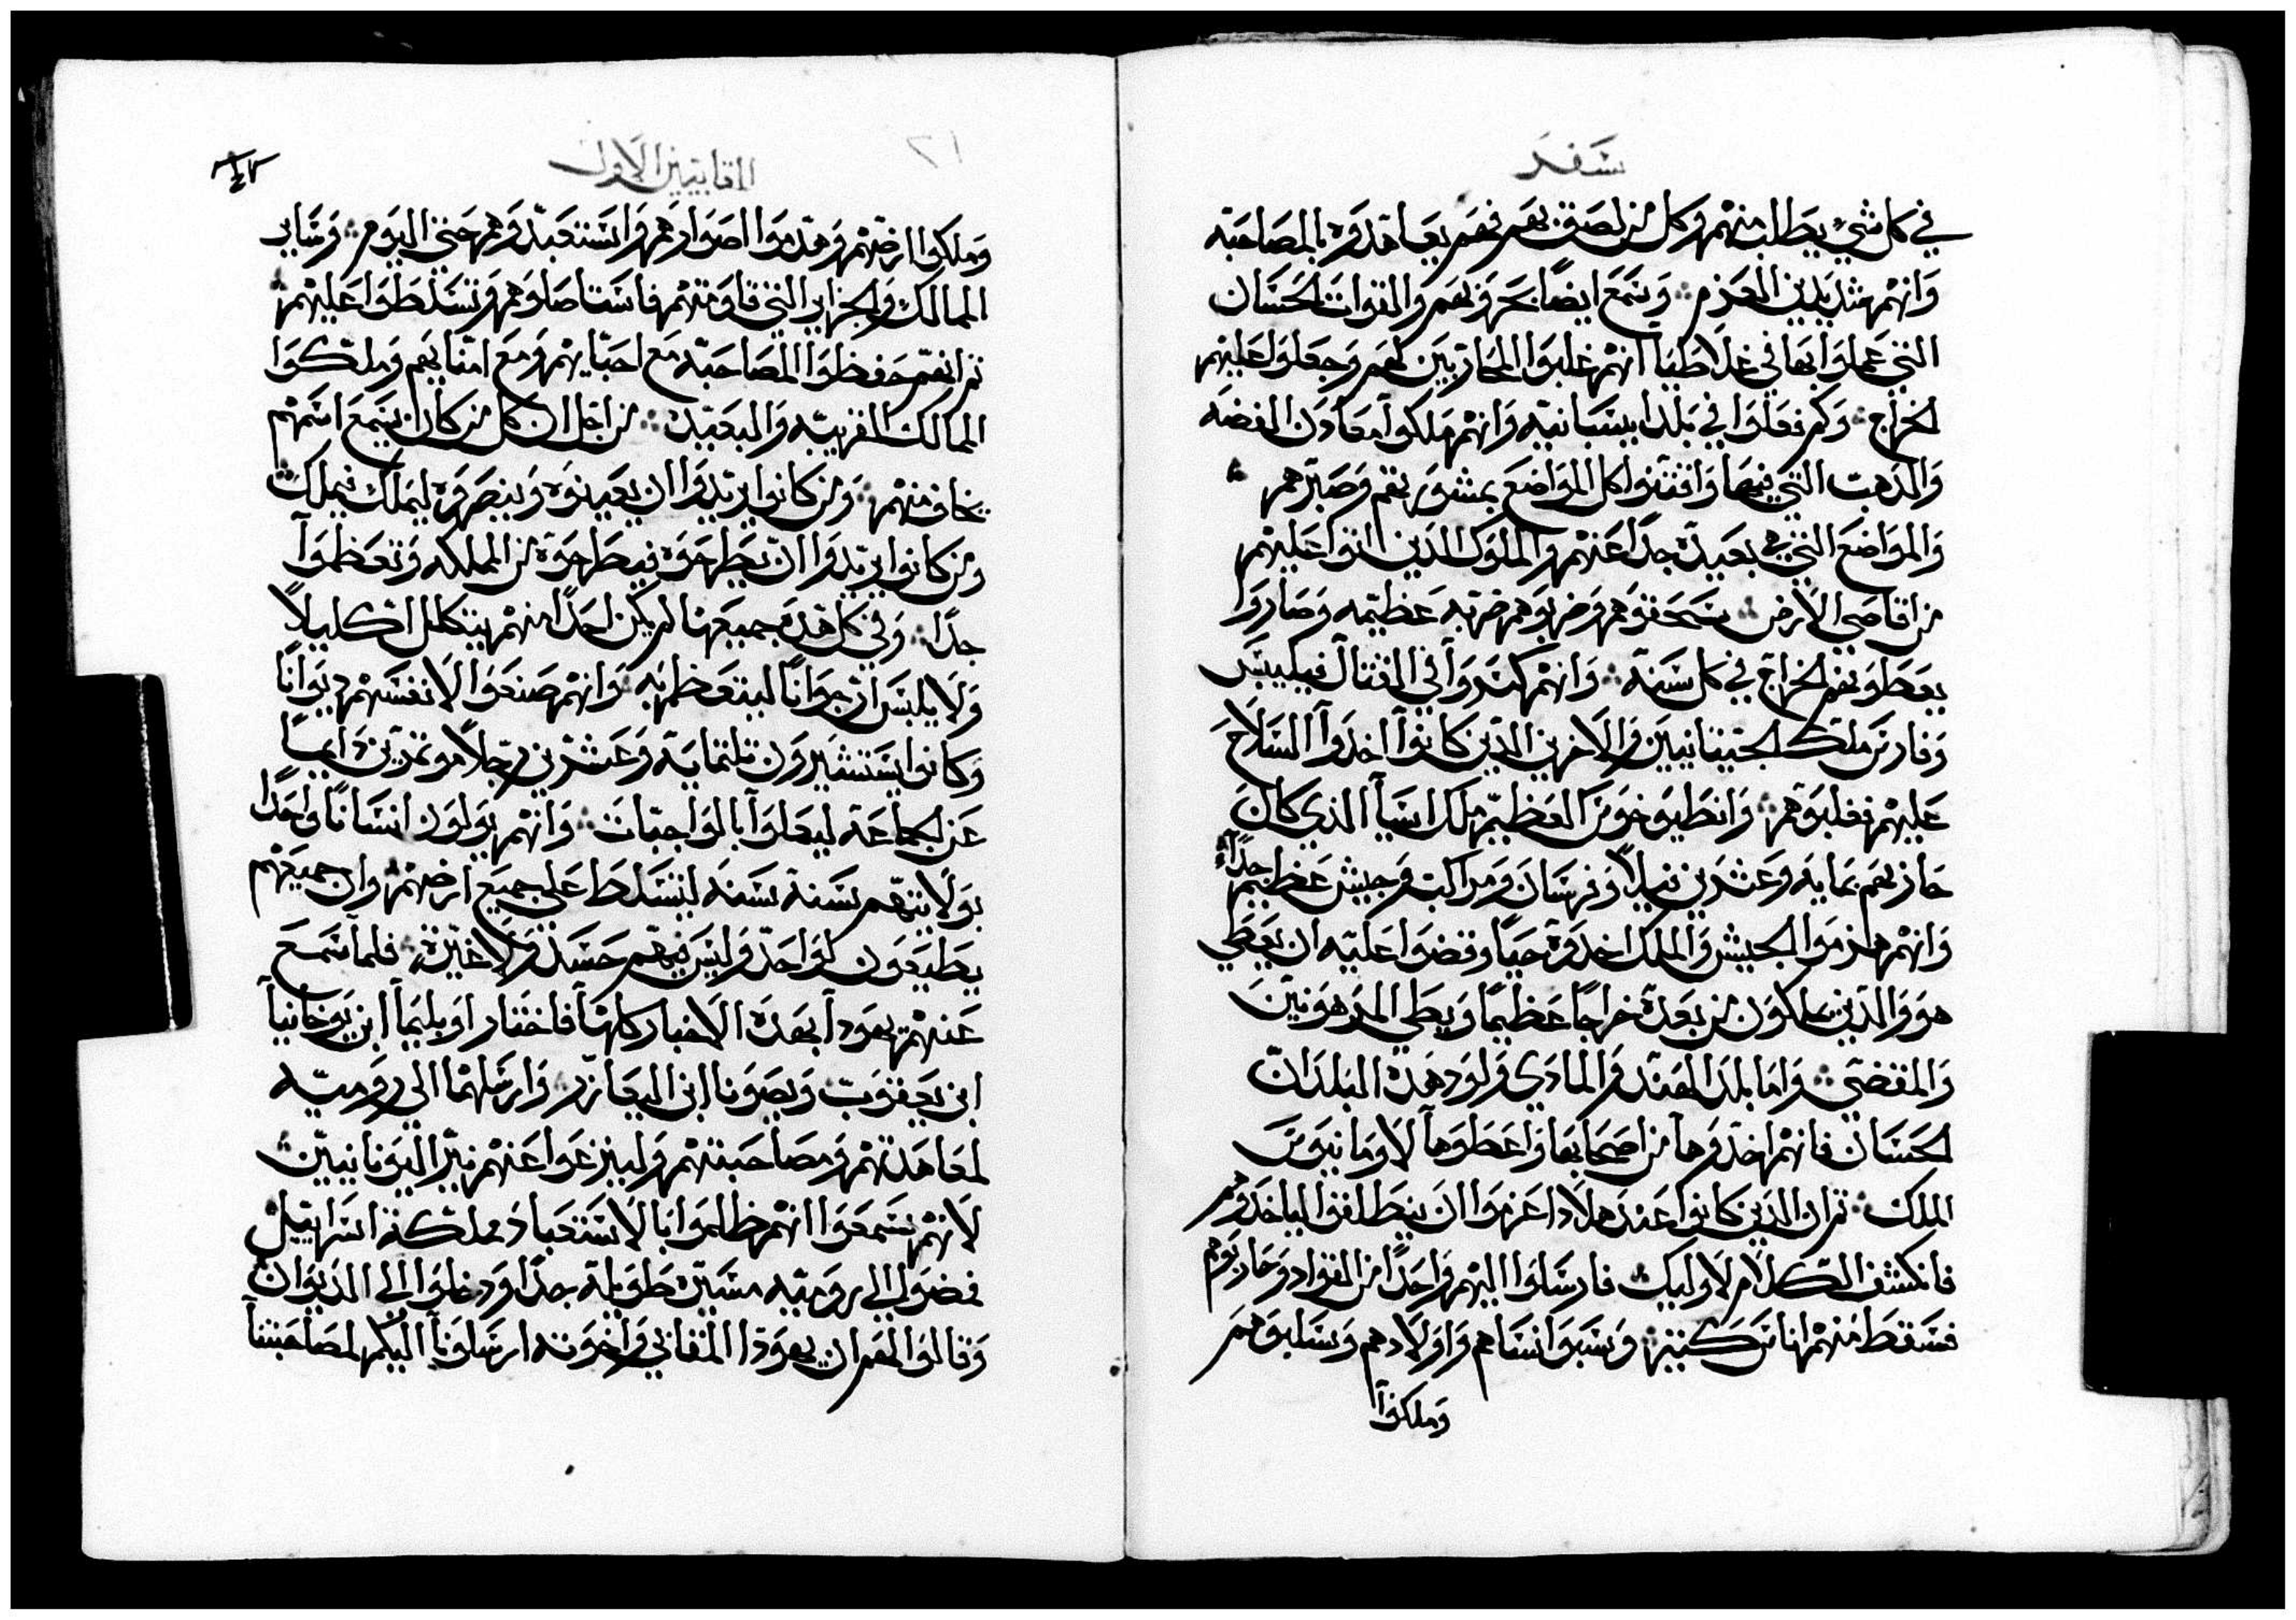 سفر
في كل شي يطلب منهم وكل من لصق بهم فهم يعاهدوه بالمصاحبه
وانهم شديدين العزم وسمع ايضاً بحروبهم والقوات الحسان
التي عملوا بها في غلاطيا انهم غلبوا المحاربين لهم وجعلوا عليهم
الخراج وكم فعلوا في بلد ايسبانيه وانهم ملكوا معادن الفضه
والدهب التي فيها واقتنوا كل المواضع بمشورتهم وصبرهم
والمواضع التي هي بعيده جداً عنهم والملوك الدين اتوا عليهم
من اقاصي الارض سحقوهم وضربوهم ضربه عظيمه وصاروا
يعطونهم الخراج في كل سنه وانهم كسروا في القتال فيليبس
وفارس ملك الجيتانيين والاخرين الدين كانوا اخدوا السلاح
عليهم فغلبوهم وانطيوخوس العظيم ملك اسيا الذي كان
حاربهم بمايه وعشرين فيلاً وفرسان ومراكب وجيش عظيم جداً
وانهم هزموا الجيش والملك اخدوه حياً وقضوا عليه ان يعطي
هو والدين يملكون من بعده خراجاً عظيماً ويعطي المرهونين
والمقضي واما بلد الهند والمادي ولود هده البلدان
الحسان فانهم اخدوها من اصحابها واعطوها لاومانيوس
الملك ثم ان الدين كانوا عند هلادا عزموا ان ينطلقوا لياخدوهم
فانكشف الكلام لاوليك فارسلوا اليهم واحداً من القواد وحاربوهم
فسقط منهم اناس كتير وسبوا نساهم واولادهم وسلبوهم
وملكوا
المقابيين الاول
وملكوا ارضهم وهدموا اصوارهم واستعبدوهم حتى اليوم وساير
الممالك والجزاير التي قاومتهم فاستاصلوهم وتسلطوا عليهم
ثم انهم حفظوا المصاحبه مع احبايهم ومع امنايهم وملكوا
الممالك القريبه والبعيده من اجل ان كل من كان يسمع اسمهم
يخاف منهم ومن كانوا يريدوا ان يعينوه وينصروه ليملك فيملك
ومن كانوا يريدوا ان يطرحوه فيطرحوه من المملكه وتعظموا
جداً وفي كل هده جميعها لم يكن احداً منهم يتكلل اكليلاً
ولا يلبس ارجواناً ليتعظم به وانهم صنعوا لانفسهم ديواناً
وكانوا يستشيرون تلتمايه وعشرين رجلاً مومرين دايماً
عن الجماعه ليعملوا بالواجبات وانهم يولون انساناً واحداً
بولايتهم سنه سنه ليتسلط على جميع ارضهم وان جميعهم
يطيعون لواحد وليس فيهم حسد ولا غيره فلما سمع
عنهم يهودا بهده الاخبار كلها فاختار اوبليما ابن يوحانيا
ابن يعقوب ويصونا ابن اليعازر وارسلهما الى روميه
لمعاهدتهم ومصاحبتهم ولينزعوا عنهم نير اليونانيين
لانهم سمعوا انهم ظلموا بالاستعباد مملكة اسراييل
فمضوا الى روميه مسيره طويله جداً ودخلوا الى الديوان
وقالوا لهم ان يهودا المقابي واخوته ارسلونا اليكم لمصاحبتنا